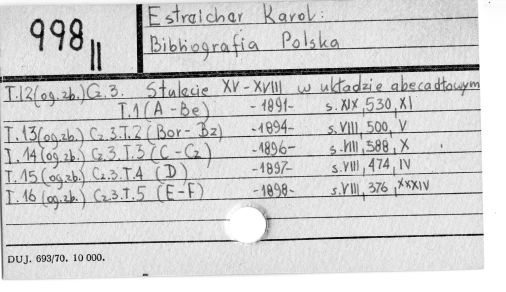 998 II
Estreicher Karol:
Bibliografia Polska
T.12(og.zb.) Cz.3. Stulecie XV-XVIII w układzie abecadłowym
T.1 (A-Be) -1891- s. XIX, 530, XI
T.13(og.zb.) Cz.3.T.2 (Bor-Bz) -1894- s. VIII, 500, V
T.14(og.zb.) Cz.3.T.3 (C-Cz) -1896- s. VIII, 588, X
T.15(og.zb.) Cz.3.T.4 (D) -1897- s. VIII, 474, IV
T.16(og.zb.) Cz.3.T.5 (E-F) -1898- s. VIII, 376, XXXIV
DUJ. 693/70. 10 000.